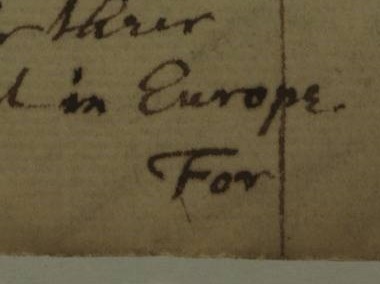 their
in Europe.
For